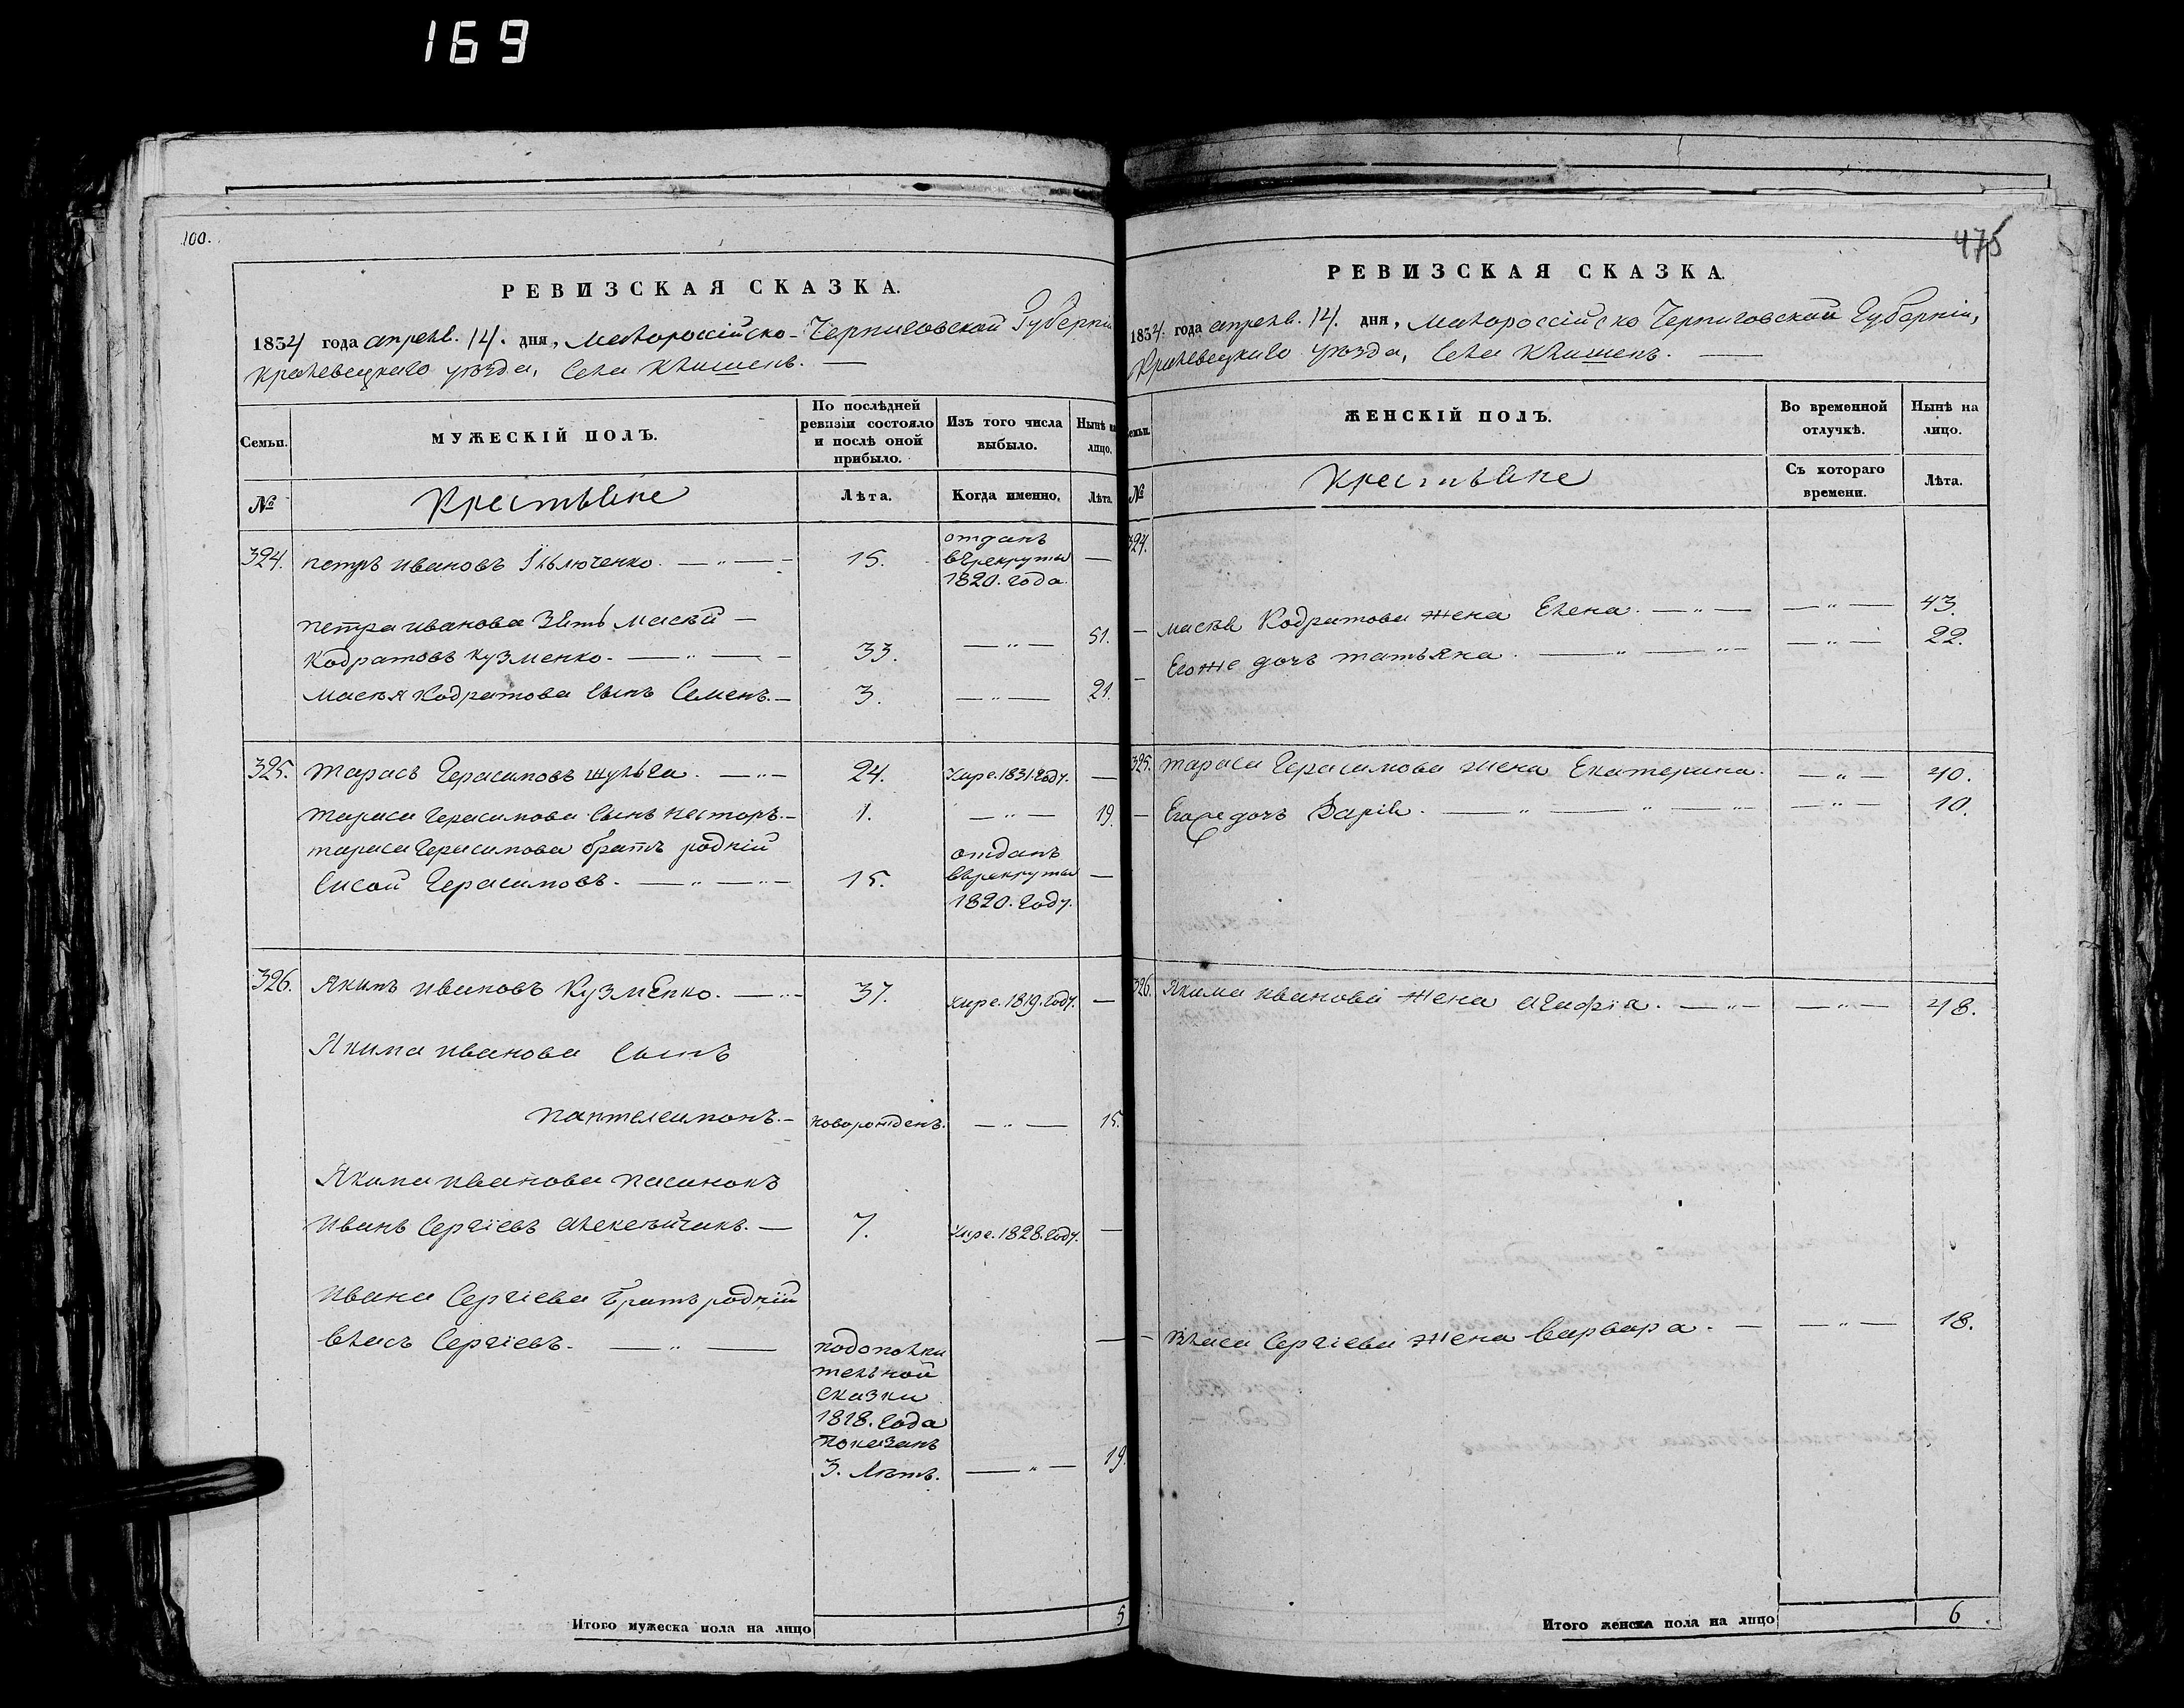 169
100.
РЕВИЗСКАЯ СКАЗКА.
1834 года апреля. 14. дня, Малороссійско-Черниговской Губерніи
Кролевецкаго уѣзда, села Клишекъ.
Семьи.
МУЖЕСКІЙ ПОЛЪ.
По послѣдней ревизіи состояло и послѣ оной прибыло.
Изъ того числа выбыло.
Нынѣ на лицо.
№
Крестьяне
Лѣта.
Когда именно.
Лѣта.
324. Петръ Ивановъ 15. отданъ врекруты 1820. года. —
Петра Иванова Зять Масѣй —
Кодратовъ Кузменко. — „ — 33. — „ — 51.
Масѣя Кодратова сынъ Семенъ. — 3. — „ — 21.
325. Тарасъ Герасимовъ Шульга. — „ — 24. Умре. 1831. году. —
Тараса Герасимова сынъ Несторъ. — 1. — „ — 19.
Тараса Герасимова братъ родній
Сисой Герасимовъ. — „ — 15. отданъ врекруты 1820. году. —
326. Якимъ Ивановъ Кузменко. — „ — 37. Умре. 1819. году. —
Якима Иванова сынъ
Пантелеимонъ. — новорожденъ. — „ — 15.
Якима Иванова пасинокъ
Иванъ Сергіевъ — 7. Умре. 1828. году. —
Ивана Сергіева братъ родній
Власъ Сергіевъ. — „ — подополни
тельной
сказки
1818. года
показанъ
3. Лѣтъ. — „ — 19.
Итого мужеска пола на лицо 5
475
РЕВИЗСКАЯ СКАЗКА.
1834. года апреля. 14. дня, Малороссійско Черниговской Губерніи,
Кролевецкаго уѣзда, села Клишекъ.
Семьи.
ЖЕНСКІЙ ПОЛЪ.
Во временной отлучкѣ.
Нынѣ на лицо.
№
Крестьяне
Съ котораго времени.
Лѣта.
324.
— Масѣя Кодратова жена Елена. — „ — — „ — 43.
— Егоже дочь Татьяна. — „ — „ — — „ — 22.
325. Тараса Герасимова жена Екатерина. — „ — 40.
— Егоже дочь Дарія. — „ — „ — „ — — „ — 10.
326. Якима Иванова жена Агафіа. — „ — — „ — 48.
— Власа Сергіева жена Варвара. — — „ — 18.
Итого женска пола на лицо 6.